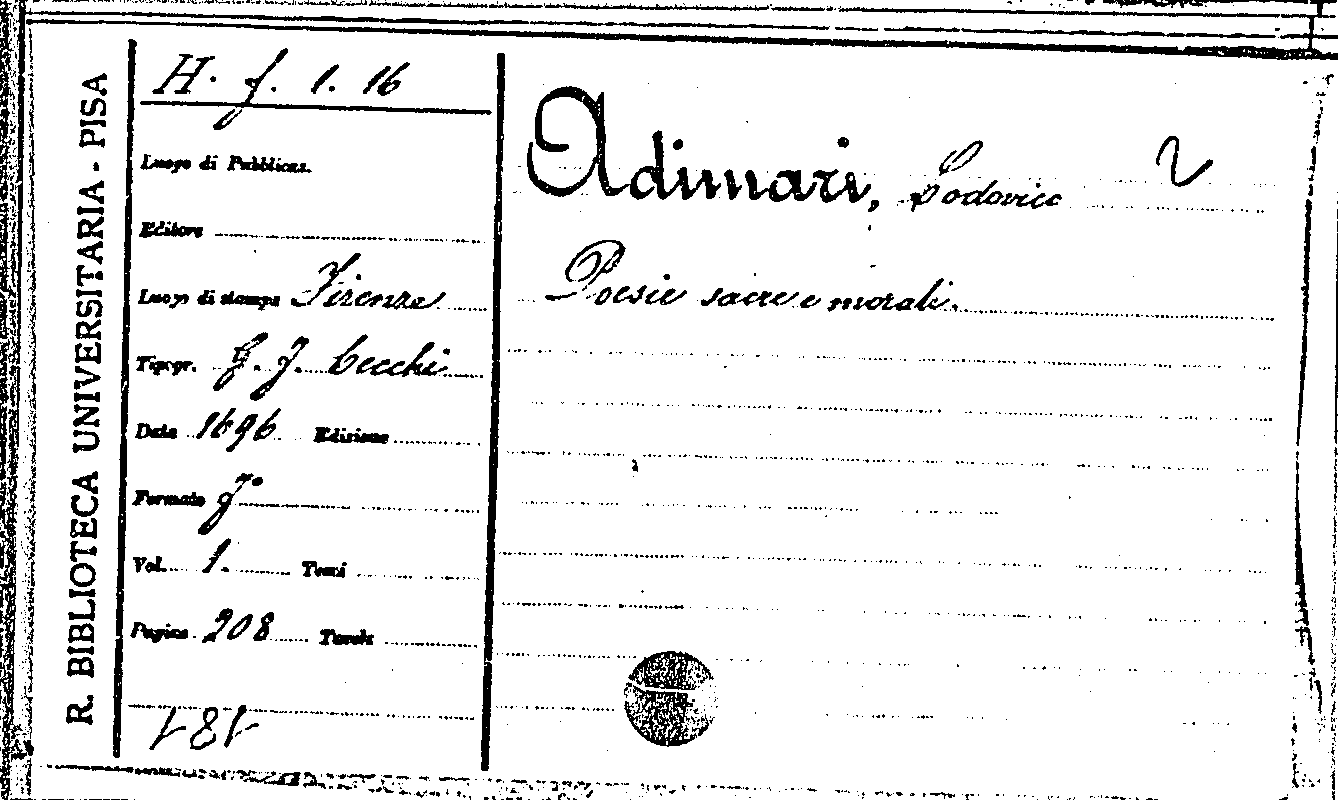 R. BIBLIOTECA UNIVERSITARIA - PISA
H. f. 1. 16
Luogo di Pubblicaz.
Editore
Luogo di stampa Firenze
Tipogr. Cecchi
Data 1696 Edizione
Formato
Vol. 1. Tomi
Pagine 208 Tavole
Adimari, Lodovico
Poesie sacre e morali.